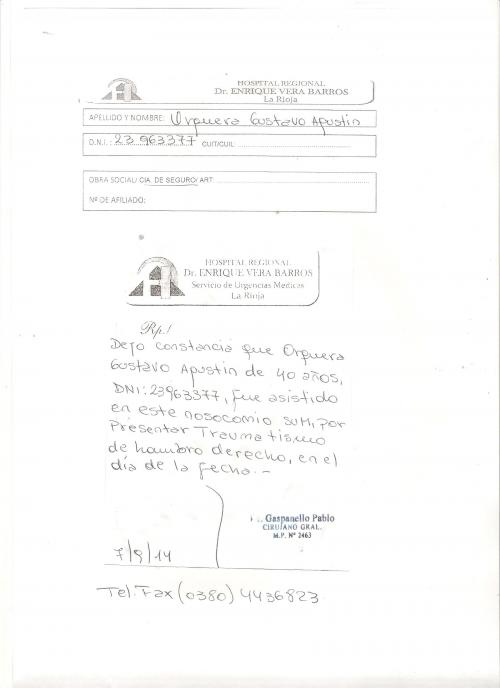 HOSPITAL REGIONAL
Dr. ENRIQUE VERA BARROS
La Rioja
APELLIDO Y NOMBRE: Orquera Gustavo Agustin
D.N.I.: 23 963377 CUIT/CUIL:
OBRA SOCIAL/ CIA. DE SEGURO/ ART:
Nº DE AFILIADO:
HOSPITAL REGIONAL
Dr. ENRIQUE VERA BARROS
Servicio de Urgencias Médicas
La Rioja
Rp./
Dejo constancia que Orquera
Gustavo Agustin de 40 años,
DNI: 23963377, fue asistido
en este nosocomio SUM, por
Presentar Traumatismo
de hombro derecho, en el
día de la fecha.-
Gaspanello Pablo
CIRUJANO GRAL.
M.P. Nº 2463
7/9/14
Tel. Fax (0380) 4436823